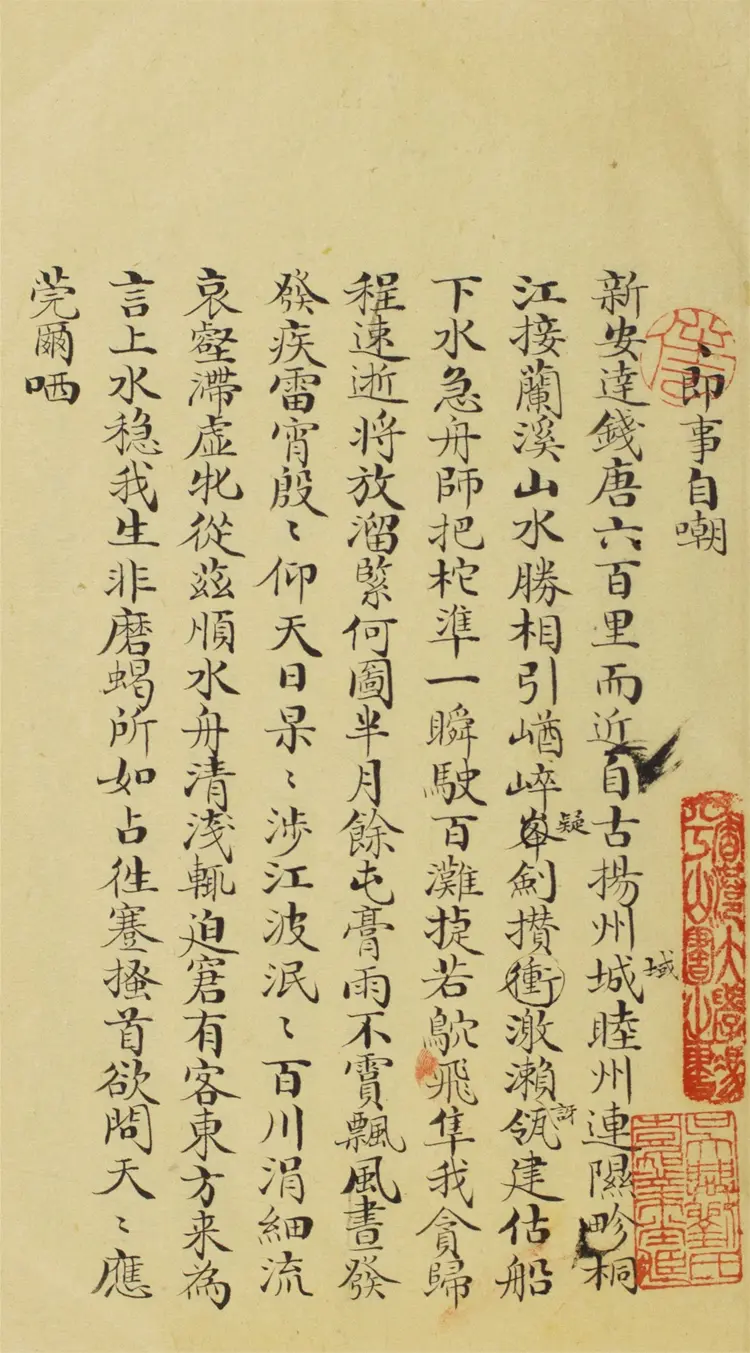 、即事自嘲
新安達錢唐六百里而近自古揚州城睦州連隰畛桐
域
江接蘭溪山水勝相引崷崒峯劍攢衝激瀨瓴建估船
疑
訝
下水急舟師把柁準一瞬駛百灘捷若鴥飛隼我貪歸
程速逝將放溜緊何圖半月餘屯膏雨不霣飄風晝發
發疾雷宵殷〻仰天日杲〻涉江波泯〻百川涓細流
哀壑滯虛牝從茲順水舟清淺輒迫窘有客東方来為
言上水稳我生非磨蝎所如占往蹇搔首欲問天〻應
莞爾哂